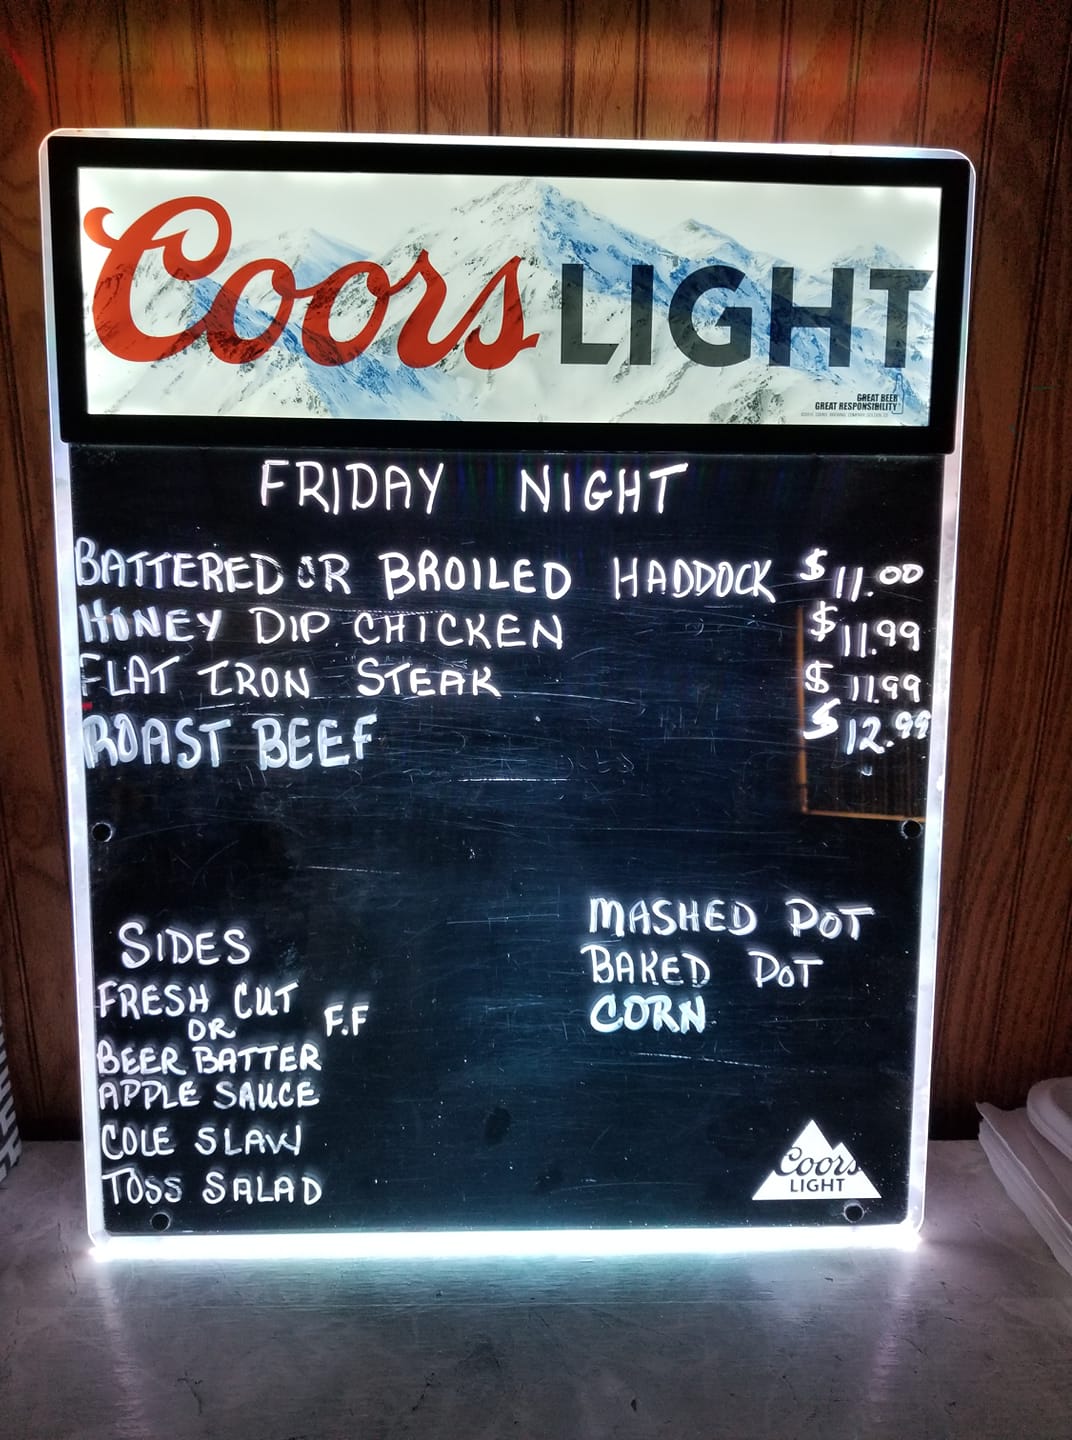 Coors LIGHT
GREAT BEER
GREAT RESPONSIBILITY
FRIDAY NIGHT
BATTERED OR BROILED HADDOCK $11.00
HONEY DIP CHICKEN $11.99
FLAT IRON STEAK $11.99
ROAST BEEF $12.99
SIDES
FRESH CUT
OR F.F
BEER BATTER
APPLE SAUCE
COLE SLAW
TOSS SALAD
MASHED POT
BAKED POT
CORN
Coors
LIGHT